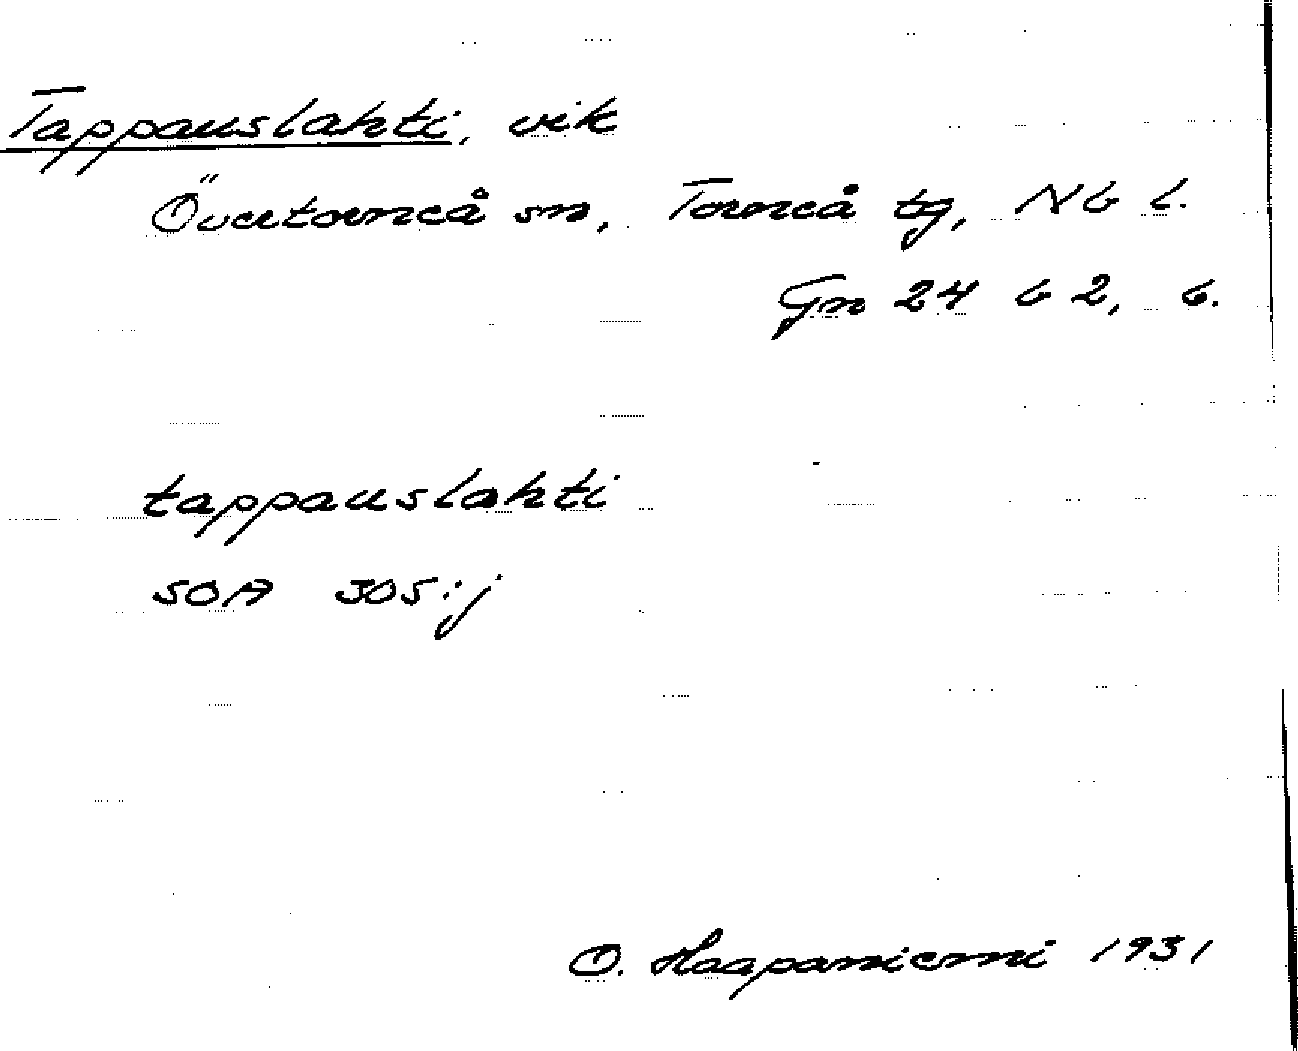 Tappauslahti, vik
Övertorneå sn, Torneå tg, Nb l.
Gn 24 b 2, b.
tappauslahti
SOA 305:j
O. Haapaniemi 1931